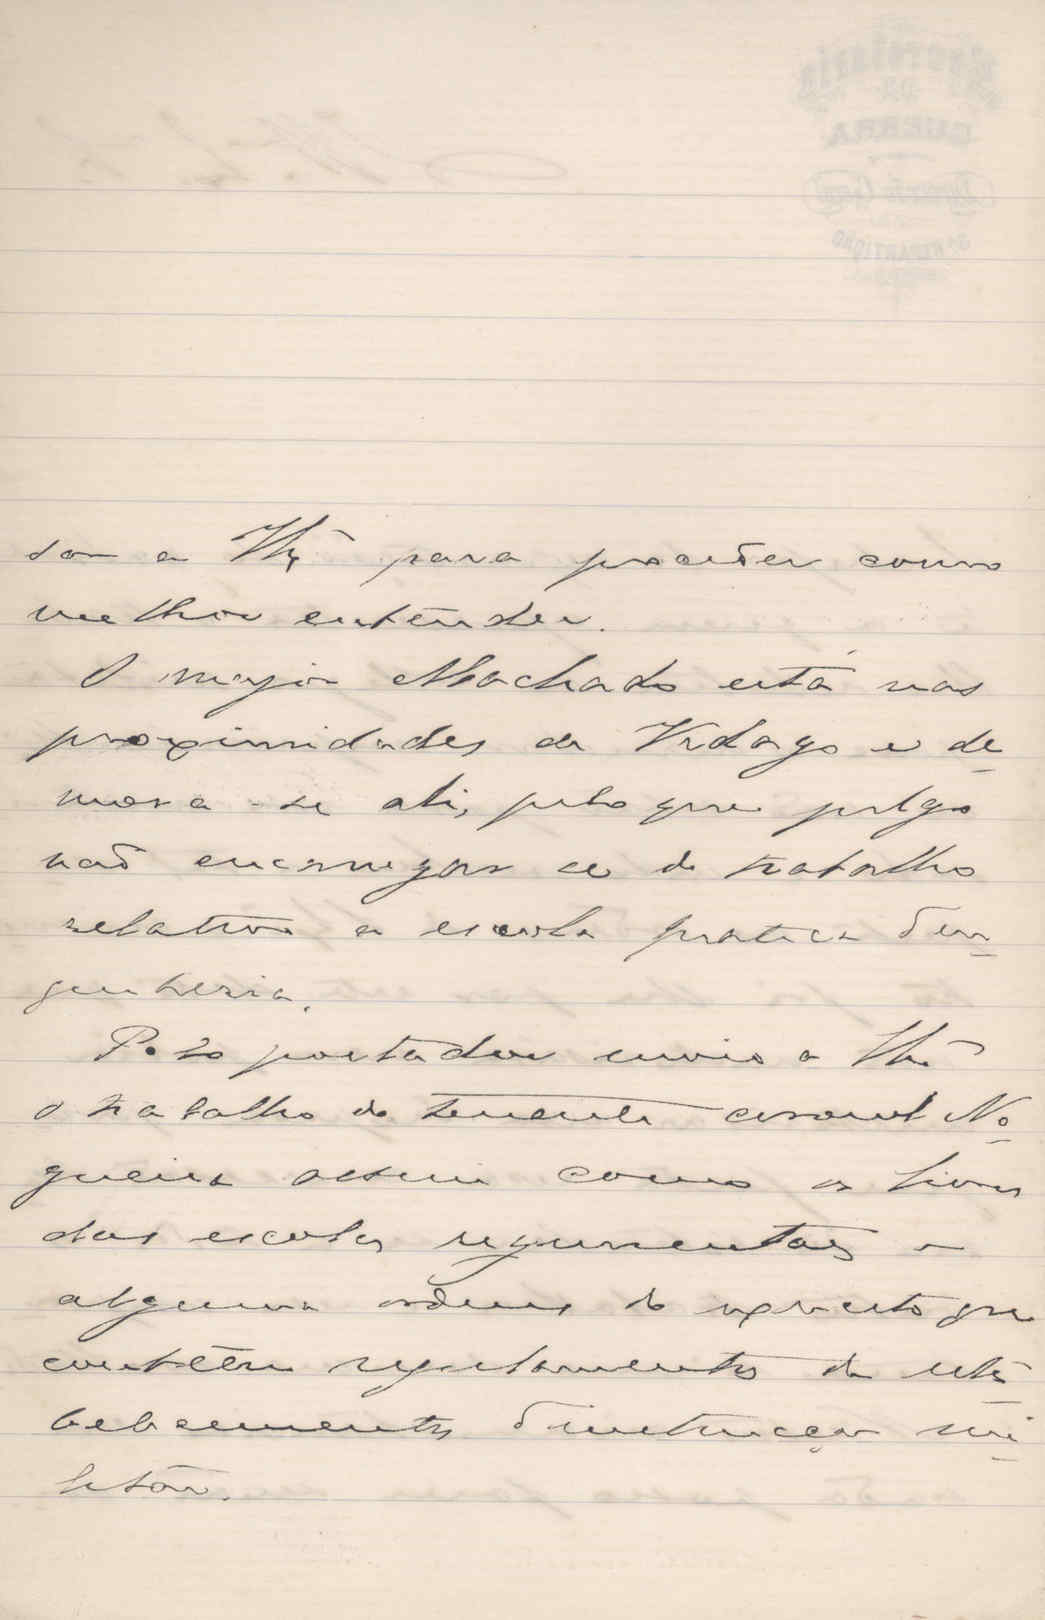 Secretaria
DA
GUERRA
Direcção Geral
3ª REPARTIÇÃO
dar a Vª para proceder como
melhor entender.
O major Machado está nas
proximidades de Vidago e de
mora-se ali, pelo que julgo
não encarregar se do trabalho
relativo a escola pratica d'en
genheria.
Pelo portador envio a Vª
o trabalho do tenente coronel No
gueira assim como os livros
das escolas regimentaes e
alguma ordens do exercito que
contêem regulamentos de esta
belecimentos d'instrucção mi
litar.